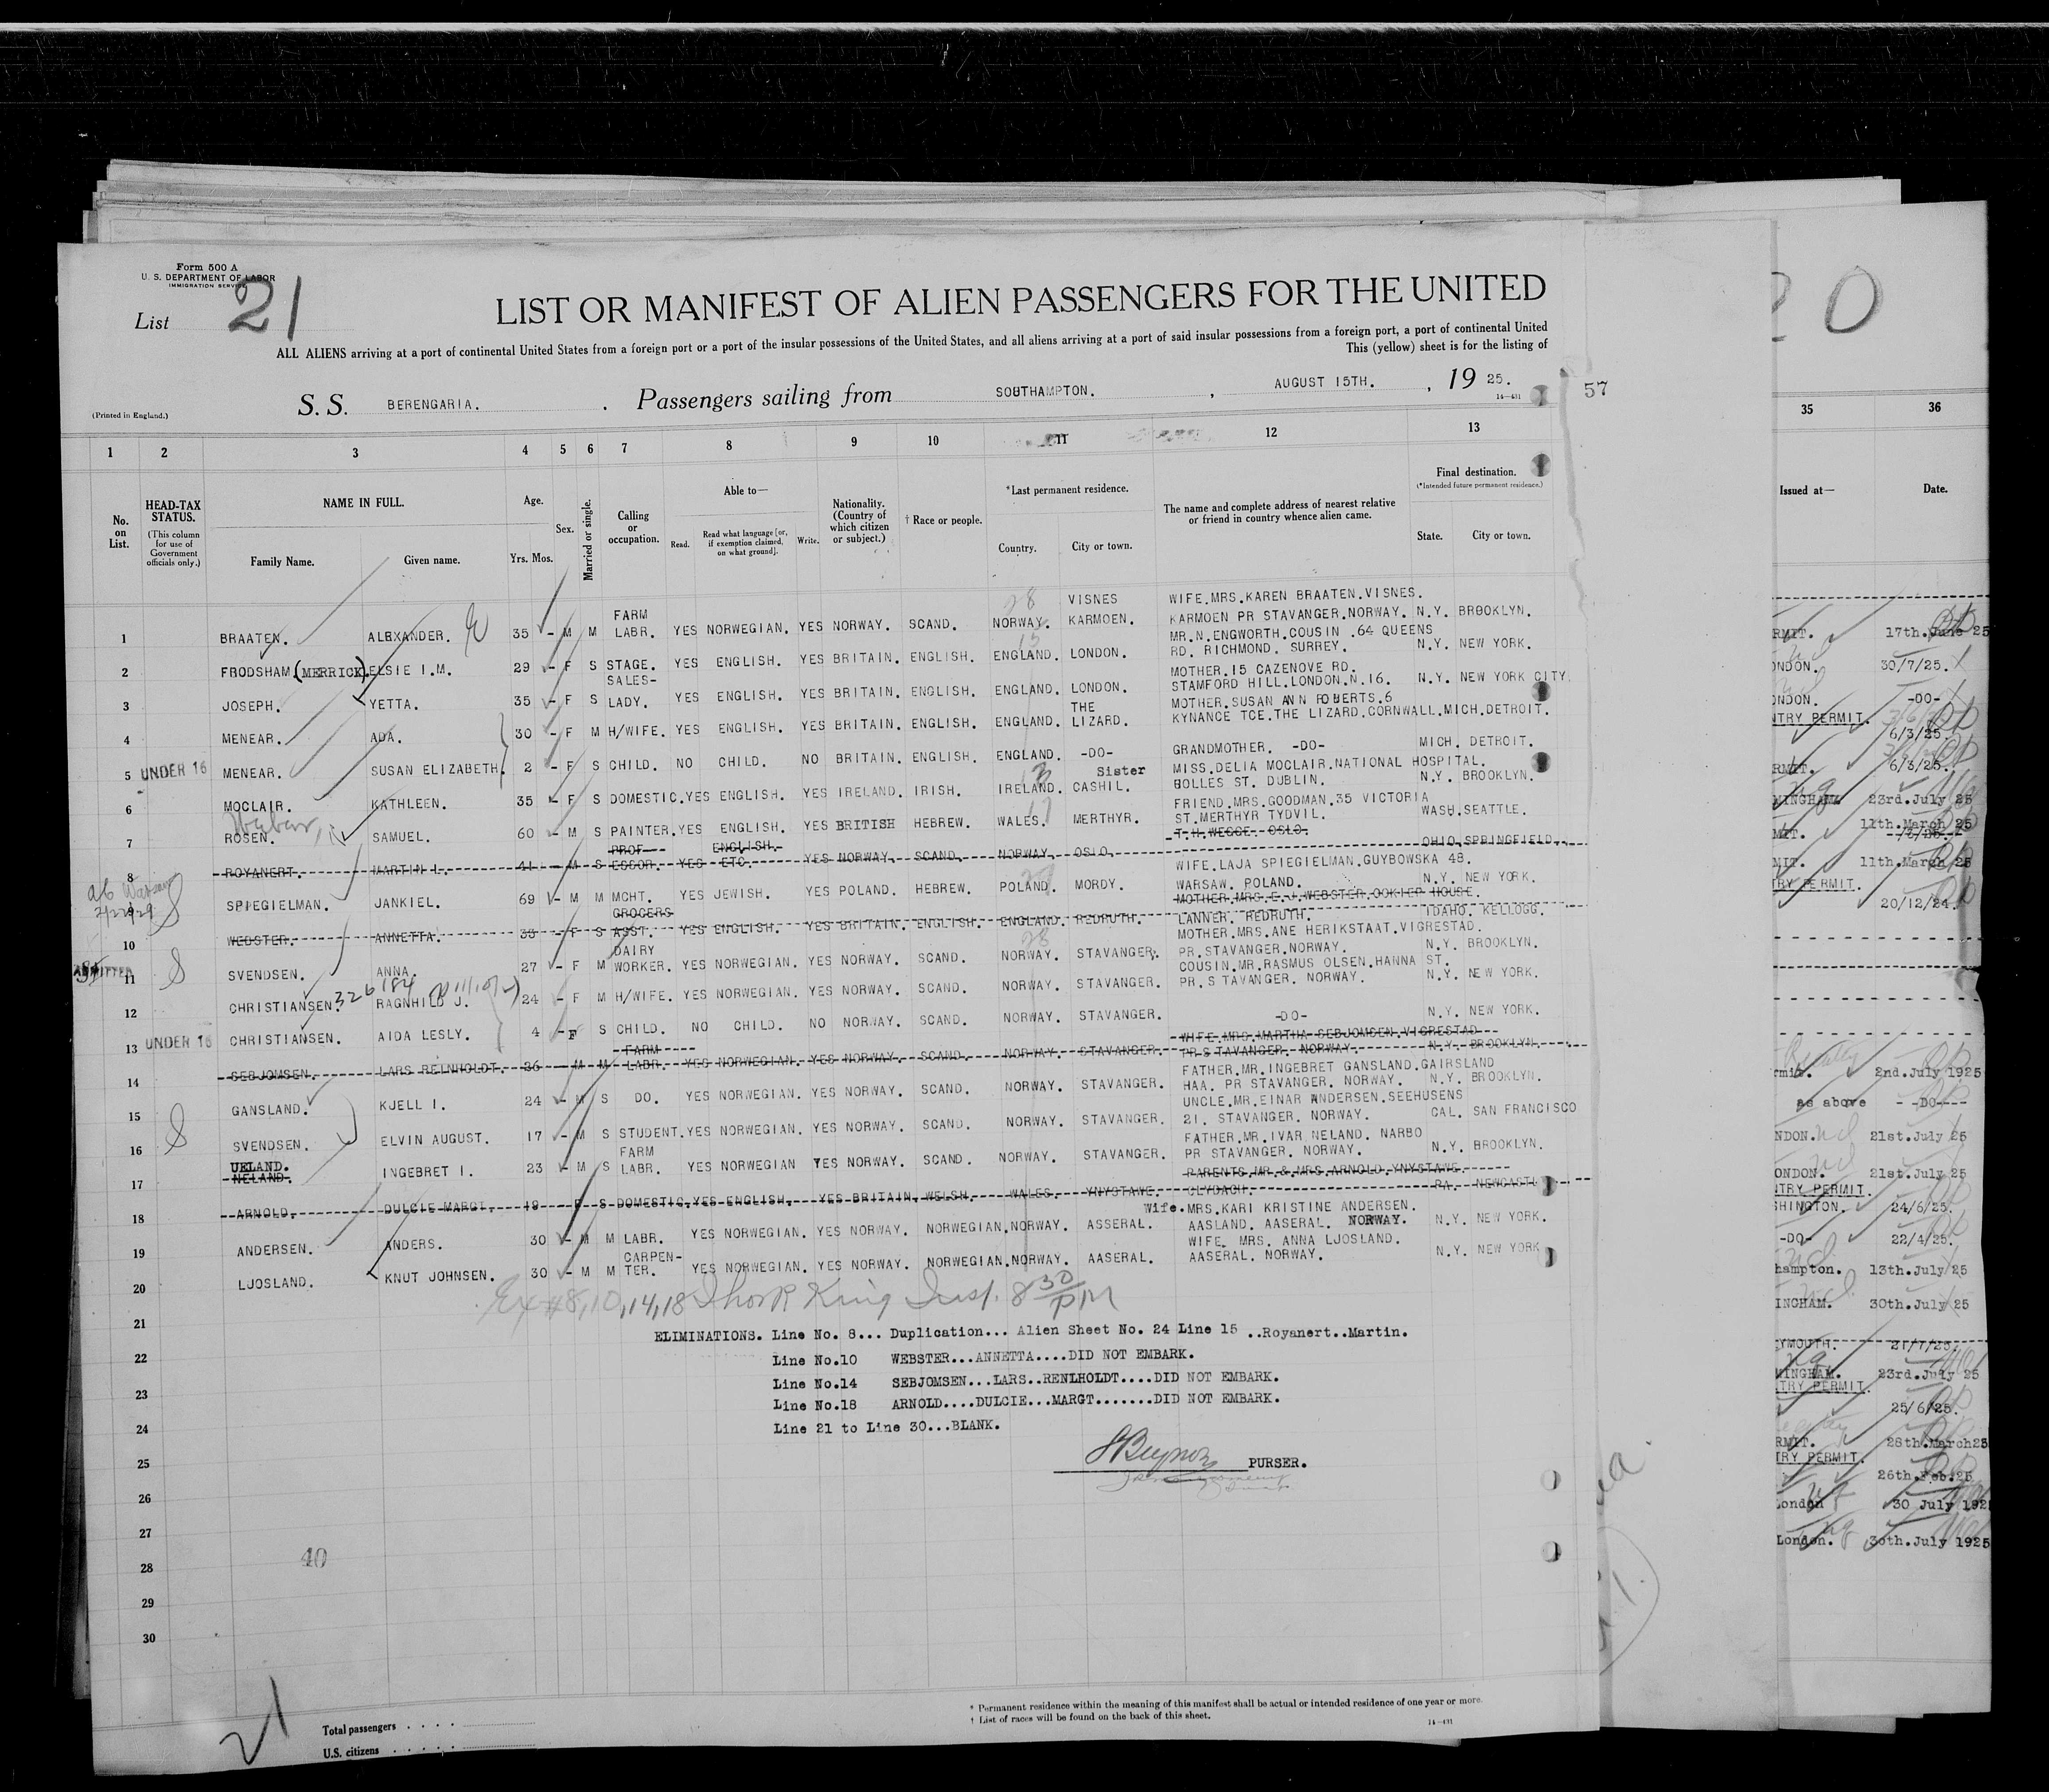 Form 500 A
U. S. DEPARTMENT OF LABOR
IMMIGRATION SERVICE
List 21
LIST OR MANIFEST OF ALIEN PASSENGERS FOR THE UNITED
ALL ALIENS arriving at a port of continental United States from a foreign port or a port of the insular possessions of the United States, and all aliens arriving at a port of said insular possessions from a foreign port, a port of continental United
This (yellow) sheet is for the listing of
(Printed in England.) S. S. BERENGARIA. , Passengers sailing from SOUTHAMPTON. , AUGUST 15TH. , 19 25.
14-431
57
20
1 2 3 4 5 6 7 8 9 10 11 12 13
35 36
No. on List.
HEAD-TAX STATUS.
(This column for use of Government officials only.)
NAME IN FULL.
Family Name. Given name.
Age.
Yrs. Mos.
Sex.
Married or single.
Calling or occupation.
Able to—
Read. Read what language [or, if exemption claimed, on what ground]. Write.
Nationality. (Country of which citizen or subject.)
† Race or people.
*Last permanent residence.
Country. City or town.
The name and complete address of nearest relative or friend in country whence alien came.
Final destination.
(*Intended future permanent residence.)
State. City or town.
Issued at— Date.
1 BRAATEN. ALEXANDER. 35 - M M FARM LABR. YES NORWEGIAN. YES NORWAY. SCAND. NORWAY. VISNES KARMOEN. WIFE.MRS.KAREN BRAATEN.VISNES. KARMOEN PR STAVANGER.NORWAY. N.Y. BROOKLYN.
2 FRODSHAM.(MERRICK). ELSIE I.M. 29 - F S STAGE. YES ENGLISH. YES BRITAIN. ENGLISH. ENGLAND. LONDON. MR.N.ENGWORTH.COUSIN .64 QUEENS RD. RICHMOND. SURREY. N.Y. NEW YORK.
3 JOSEPH. YETTA. 35 - F S SALES-LADY. YES ENGLISH. YES BRITAIN. ENGLISH. ENGLAND. LONDON. MOTHER.15 CAZENOVE RD. STAMFORD HILL.LONDON.N.16. N.Y. NEW YORK CITY.
4 MENEAR. ADA. 30 - F M H/WIFE. YES ENGLISH. YES BRITAIN. ENGLISH. ENGLAND. THE LIZARD. MOTHER.SUSAN ANN ROBERTS.6 KYNANCE TCE.THE LIZARD.CORNWALL.MICH.DETROIT.
5 UNDER 16 MENEAR. SUSAN ELIZABETH. 2 - F S CHILD. NO CHILD. NO BRITAIN. ENGLISH. ENGLAND. -DO- GRANDMOTHER. -DO- MICH. DETROIT.
6 MOCLAIR. KATHLEEN. 35 - F S DOMESTIC. YES ENGLISH. YES IRELAND. IRISH. IRELAND. CASHIL. Sister MISS.DELIA MOCLAIR.NATIONAL HOSPITAL. BOLLES ST. DUBLIN. N.Y. BROOKLYN.
7 ROSEN. SAMUEL. 60 - M S PAINTER. YES ENGLISH. YES BRITISH HEBREW. WALES. MERTHYR. FRIEND.MRS.GOODMAN.35 VICTORIA ST.MERTHYR TYDVIL. WASH.SEATTLE.
8 ROYANERT. MARTIN L. 41 - M S PROF-ESSOR. YES ENGLISH. ETC. YES NORWAY. SCAND. NORWAY. OSLO. T.H.WEGGE. OSLO. OHIO.SPRINGFIELD.
9 SPIEGIELMAN. JANKIEL. 69 - M M MCHT. YES JEWISH. YES POLAND. HEBREW. POLAND. MORDY. WIFE.LAJA SPIEGIELMAN.GUYBOWSKA 48. WARSAW. POLAND. N.Y. NEW YORK.
10 WEBSTER. ANNETTA. 35 - F S GROCERS ASST. YES ENGLISH. YES BRITAIN. ENGLISH. ENGLAND. REDRUTH. MOTHER.MRS.E.J.WEBSTER. HOUSE. LANNER. REDRUTH. IDAHO. KELLOGG.
11 SVENDSEN. ANNA. 27 - F M DAIRY WORKER. YES NORWEGIAN. YES NORWAY. SCAND. NORWAY. STAVANGER. MOTHER.MRS.ANE HERIKSTAAT.VIGRESTAD. PR.STAVANGER.NORWAY. N.Y. BROOKLYN.
12 CHRISTIANSEN. RAGNHILD J. 24 - F M H/WIFE. YES NORWEGIAN. YES NORWAY. SCAND. NORWAY. STAVANGER. COUSIN.MR.RASMUS OLSEN.HANNA ST. PR.STAVANGER. NORWAY. N.Y. NEW YORK.
13 UNDER 16 CHRISTIANSEN. AIDA LESLY. 4 - F S CHILD. NO CHILD. NO NORWAY. SCAND. NORWAY. STAVANGER. -DO- N.Y. NEW YORK.
14 SEBJOMSEN. LARS REINHOLDT. 36 - M M FARM LABR. YES NORWEGIAN. YES NORWAY. SCAND. NORWAY. STAVANGER. WIFE.MRS.MARTHA SEBJOMSEN.VIGRESTAD PR STAVANGER. NORWAY. N.Y. BROOKLYN.
15 GANSLAND. KJELL I. 24 - M S DO. YES NORWEGIAN. YES NORWAY. SCAND. NORWAY. STAVANGER. FATHER.MR.INGEBRET GANSLAND.GAIRSLAND HAA. PR STAVANGER. NORWAY. N.Y. BROOKLYN.
16 SVENDSEN. ELVIN AUGUST. 17 - M S STUDENT. YES NORWEGIAN. YES NORWAY. SCAND. NORWAY. STAVANGER. UNCLE.MR.EINAR ANDERSEN.SEEHUSENS 21. STAVANGER. NORWAY. CAL. SAN FRANCISCO
17 UELAND. NELAND. INGEBRET I. 23 - M S FARM LABR. YES NORWEGIAN YES NORWAY. SCAND. NORWAY. STAVANGER. FATHER.MR.IVAR NELAND. NARBO PR STAVANGER. NORWAY. N.Y. BROOKLYN.
18 ARNOLD. DULCIE MARGT. 19 - F S DOMESTIC. YES ENGLISH. YES BRITAIN. WELSH. WALES. YNYSTAWE. PARENTS.MR.& MRS.ARNOLD.YNYSTAWE. CLYDACH. PA. NEWCASTL
19 ANDERSEN. ANDERS. 30 - M M LABR. YES NORWEGIAN. YES NORWAY. NORWEGIAN. NORWAY. ASSERAL. Wife.MRS.KARI KRISTINE ANDERSEN. AASLAND. AASERAL. NORWAY. N.Y. NEW YORK.
20 LJOSLAND. KNUT JOHNSEN. 30 - M M CARPEN-TER. YES NORWEGIAN. YES NORWAY. NORWEGIAN. NORWAY. AASERAL. WIFE. MRS. ANNA LJOSLAND. AASERAL. NORWAY. N.Y. NEW YORK
Ex #8,10,14,18 King Insp. 8 30 PM
21
ELIMINATIONS. Line No. 8... Duplication... Alien Sheet No. 24 Line 15 ..Royanert..Martin.
22 Line No.10 WEBSTER...ANNETTA....DID NOT EMBARK.
23 Line No.14 SEBJOMSEN...LARS..RENLHOLDT....DID NOT EMBARK.
Line No.18 ARNOLD....DULCIE...MARGT.......DID NOT EMBARK.
24 Line 21 to Line 30...BLANK.
25 PURSER.
26
27
28 40
29
30
* Permanent residence within the meaning of this manifest shall be actual or intended residence of one year or more.
† List of races will be found on the back of this sheet.
14-431
21
Total passengers . . . .
U.S. citizens . . . . .
RMIT. 17th.June 25
ONDON. 30/7/25.
ONDON. -DO-
NTRY PERMIT.
6/3/25.
RMIT. 6/3/25.
MINGHAM. 23rd.July 25
MIT. 11th.March 25
MIT. 11th.March 25
TRY PERMIT.
20/12/24.
rmit. 2nd.July 1925
as above - -DO----
NDON. 21st.July 25
ONDON. 21st.July 25
NTRY PERMIT.
SHINGTON. 24/6/25.
-DO- 22/4/25.
hampton. 13th.July 25
INGHAM. 30th.July 25
YMOUTH. 21/7/25.
MINGHAM. 23rd.July 25
TRY PERMIT.
25/6/25.
RMIT. 28th.March25
TRY PERMIT.
26th.Feb.25
London 30 July 192
London. 30th.July 1925